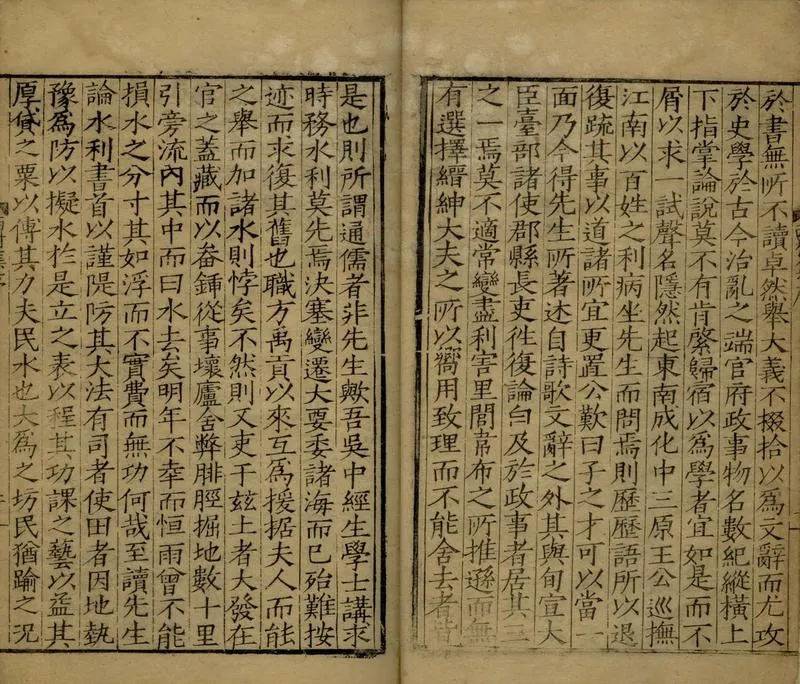 於書無所不讀卓然舉大義不掇拾以爲文辭而尤攻
於史學於古今治亂之端官府政事物名數紀縱橫上
下指掌論說莫不有肯綮歸宿以爲學者宜如是而不
屑以求一試聲名隱然起東南成化中三原王公巡撫
江南以百姓之利病坐先生而問焉則歷歷語所以退
復疏其事以道諸所宜更置公歎曰子之才可以當一
面乃今得先生所著述自詩歌文辭之外其與旬宣大
臣臺部諸使郡縣長吏徃復論白及於政事者居其三
之一焉莫不適常變盡利害里閭韋布之所推遜而無
有選擇縉紳大夫之所以嚮用致理而不能舍去者豈
是也則所謂通儒者非先生歟吾吳中經生學士講求
時務水利莫先焉決塞變遷大要委諸海而已殆難按
迹而求復其舊也職方禹貢以來互爲援据夫人而能
之舉而加諸水則悖矣不然則又吏于茲土者大發在
官之蓋藏而以畚鍤從事壞廬舍弊腓脛掘地數十里
引旁流內其中而曰水去矣明年不幸而恒雨曾不能
損水之分寸其如浮而不實費而無功何哉至讀先生
論水利書首以謹隄防其大法有司者使田者因地埶
豫爲防以擬水於是立之表以程其功課之藝以益其
厚貸之粟以傅其力夫民水也大爲之坊民猶踰之況